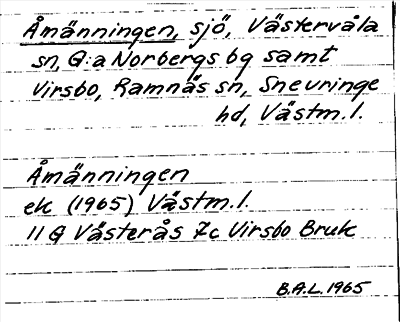 Åmänningen, sjö, Västervåla
sn, G:a Norbergs bg samt
Virsbo, Ramnäs sn, Snevringe
hd, Västm.l.
Åmänningen
ek (1965) Västm.l.
11 G Västerås 7c Virsbo Bruk
B.A.L. 1965